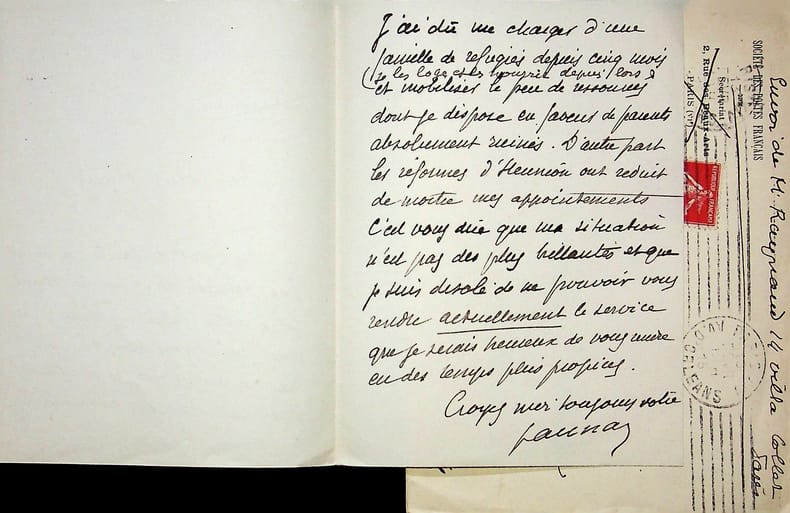 J'ai dû me charger d'une
famille de refugiés depuis cinq mois
(je les loge et les nourris depuis lors)
et mobiliser le peu de ressources
dont je dispose en faveur de parents
absolument ruinés. D'autre part
les réformes d'Henrion ont reduit
de moitié mes appointements
C'est vous dire que ma situation
n'est pas des plus brillantes et que
je suis desolé de ne pouvoir vous
rendre actuellement le service
que je serais heureux de vous
en des temps plus propices.
Croyez moi toujours votre
SOCIÉTÉ DES POÈTES FRANÇAIS
Secrétariat :
2, Rue des Beaux-Arts
PARIS (VIe)
Envoi de M. Raynaud 14 villa Collet
Paris
ORLEANS